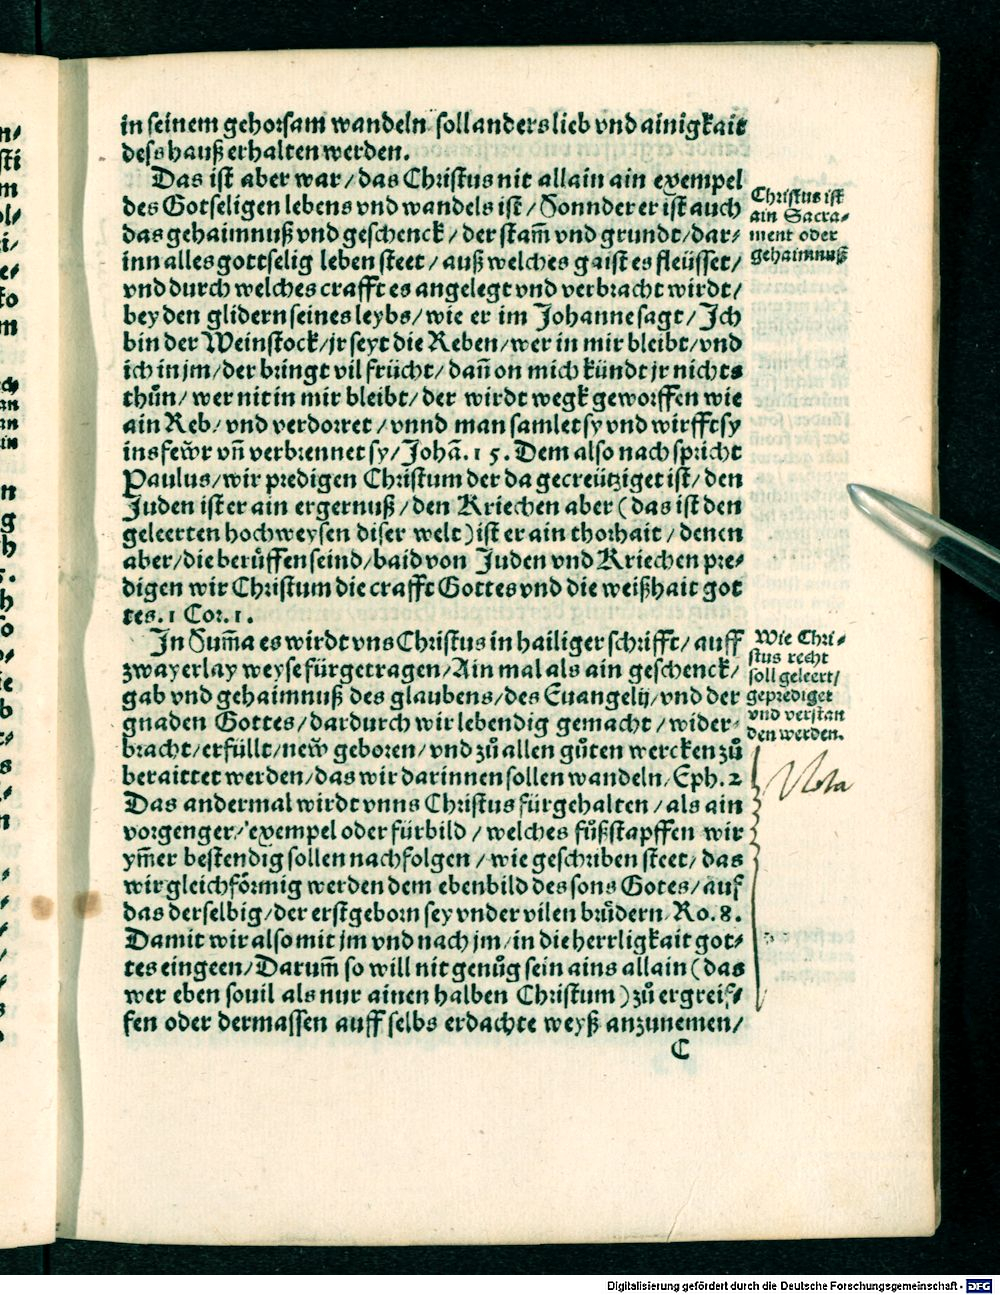 in seinem gehorsam wandeln soll anders lieb vnd ainigkait
dess hauß erhalten werden.
Das ist aber war / das Christus nit allain ain exempel
des Gotseligen lebens vnd wandels ist / Sonnder er ist auch
das gehaimnuß vnd geschenck / der stam̃ vnd grundt / dar-
inn alles gottselig leben steet / auß welches gaist es fleüsset /
vnd durch welches crafft es angelegt vnd verbracht wirdt /
bey den glidern seines leybs / wie er im Johanne sagt / Ich
bin der Weinstock / jr seyt die Reben / wer in mir bleibt / vnd
ich in jm / der bringt vil frücht / dañ on mich kündt jr nichts
thůn / wer nit in mir bleibt / der wirdt wegk geworffen wie
ain Reb / vnd verdorret / vnnd man samlet sy vnd wirfft sy
ins feẘr vñ verbrennet sy / Johã. 15. Dem also nach spricht
Paulus / wir predigen Christum der da gecreütziget ist / den
Juden ist er ain ergernuß / den Kriechen aber ( das ist den
geleerten hochweysen diser welt ) ist er ain thorhait / denen
aber / die berůffen seind / baid von Juden vnd Kriechen pre-
digen wir Christum die crafft Gottes vnd die weißhait got
tes. 1 Cor. 1.
In Sum̃a es wirdt vns Christus in hailiger schrifft / auff
zwayerlay weyse fürgetragen / Ain mal als ain geschenck /
gab vnd gehaimnuß des glaubens / des Euangelij / vnd der
gnaden Gottes / dardurch wir lebendig gemacht / wider-
bracht / erfüllt / neẘ geboren / vnd zů allen gůten wercken zů
beraittet werden / das wir darinnen sollen wandeln / Eph. 2
Das andermal wirdt vnns Christus fürgehalten / als ain
vorgenger / exempel oder fürbild / welches fůßstapffen wir
ym̃er bestendig sollen nachfolgen / wie geschriben steet / das
wir gleichförmig werden dem ebenbild des sons Gotes / auf
das derselbig / der erstgeborn sey vnder vilen brůdern / Ro. 8.
Damit wir also mit jm vnd nach jm / in die herrligkait got-
tes eingeen / Darum̃ so will nit genůg sein ains allain ( das
wer eben souil als nur ainen halben Christum ) zů ergreif-
fen oder dermassen auff selbs erdachte weyß anzunemen /
C
Christus ist
ain Sacra-
ment oder
gehaimnuß
Wie Chri-
stus recht
soll geleert /
geprediget
vnd verstan
den werden.
Nota
Digitalisierung gefördert durch die Deutsche Forschungsgemeinschaft - DFG